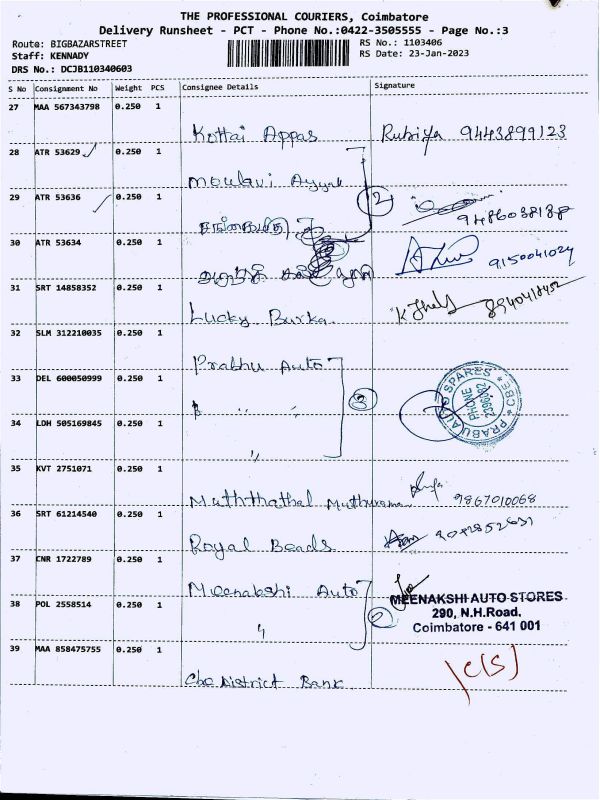 THE PROFESSIONAL COURIERS, Coimbatore
Delivery Runsheet - PCT - Phone No.:0422-3505555 - Page No.:3
Route: BIGBAZARSTREET
Staff: KENNADY
DRS No.: DCJB110340603
RS No.: 1103406
RS Date: 23-Jan-2023
S No Consignment No Weight PCS Consignee Details Signature
27 MAA 567343798 0.250 1
Kottai Appas Rubiya 9443899123
28 ATR 53629 0.250 1
Moulavi
29 ATR 53636 0.250 1
2
9486038188
30 ATR 53634 0.250 1
9150041024
31 SRT 14858352 0.250 1
Lucky Burka 8940418452
32 SLM 312210035 0.250 1
Prabhu Auto
33 DEL 600050999 0.250 1
" "
3
PRABU AUTO SPARES * CBE *
PHONE
34 LDH 505169845 0.250 1
"
35 KVT 2751071 0.250 1
Muththathal 9867010068
36 SRT 61214540 0.250 1
Royal Beads
37 CNR 1722789 0.250 1
Meenakshi Auto
MEENAKSHI AUTO STORES
290, N.H.Road,
Coimbatore - 641 001
38 POL 2558514 0.250 1
"
2
39 MAA 858475755 0.250 1
Cbe District Bank